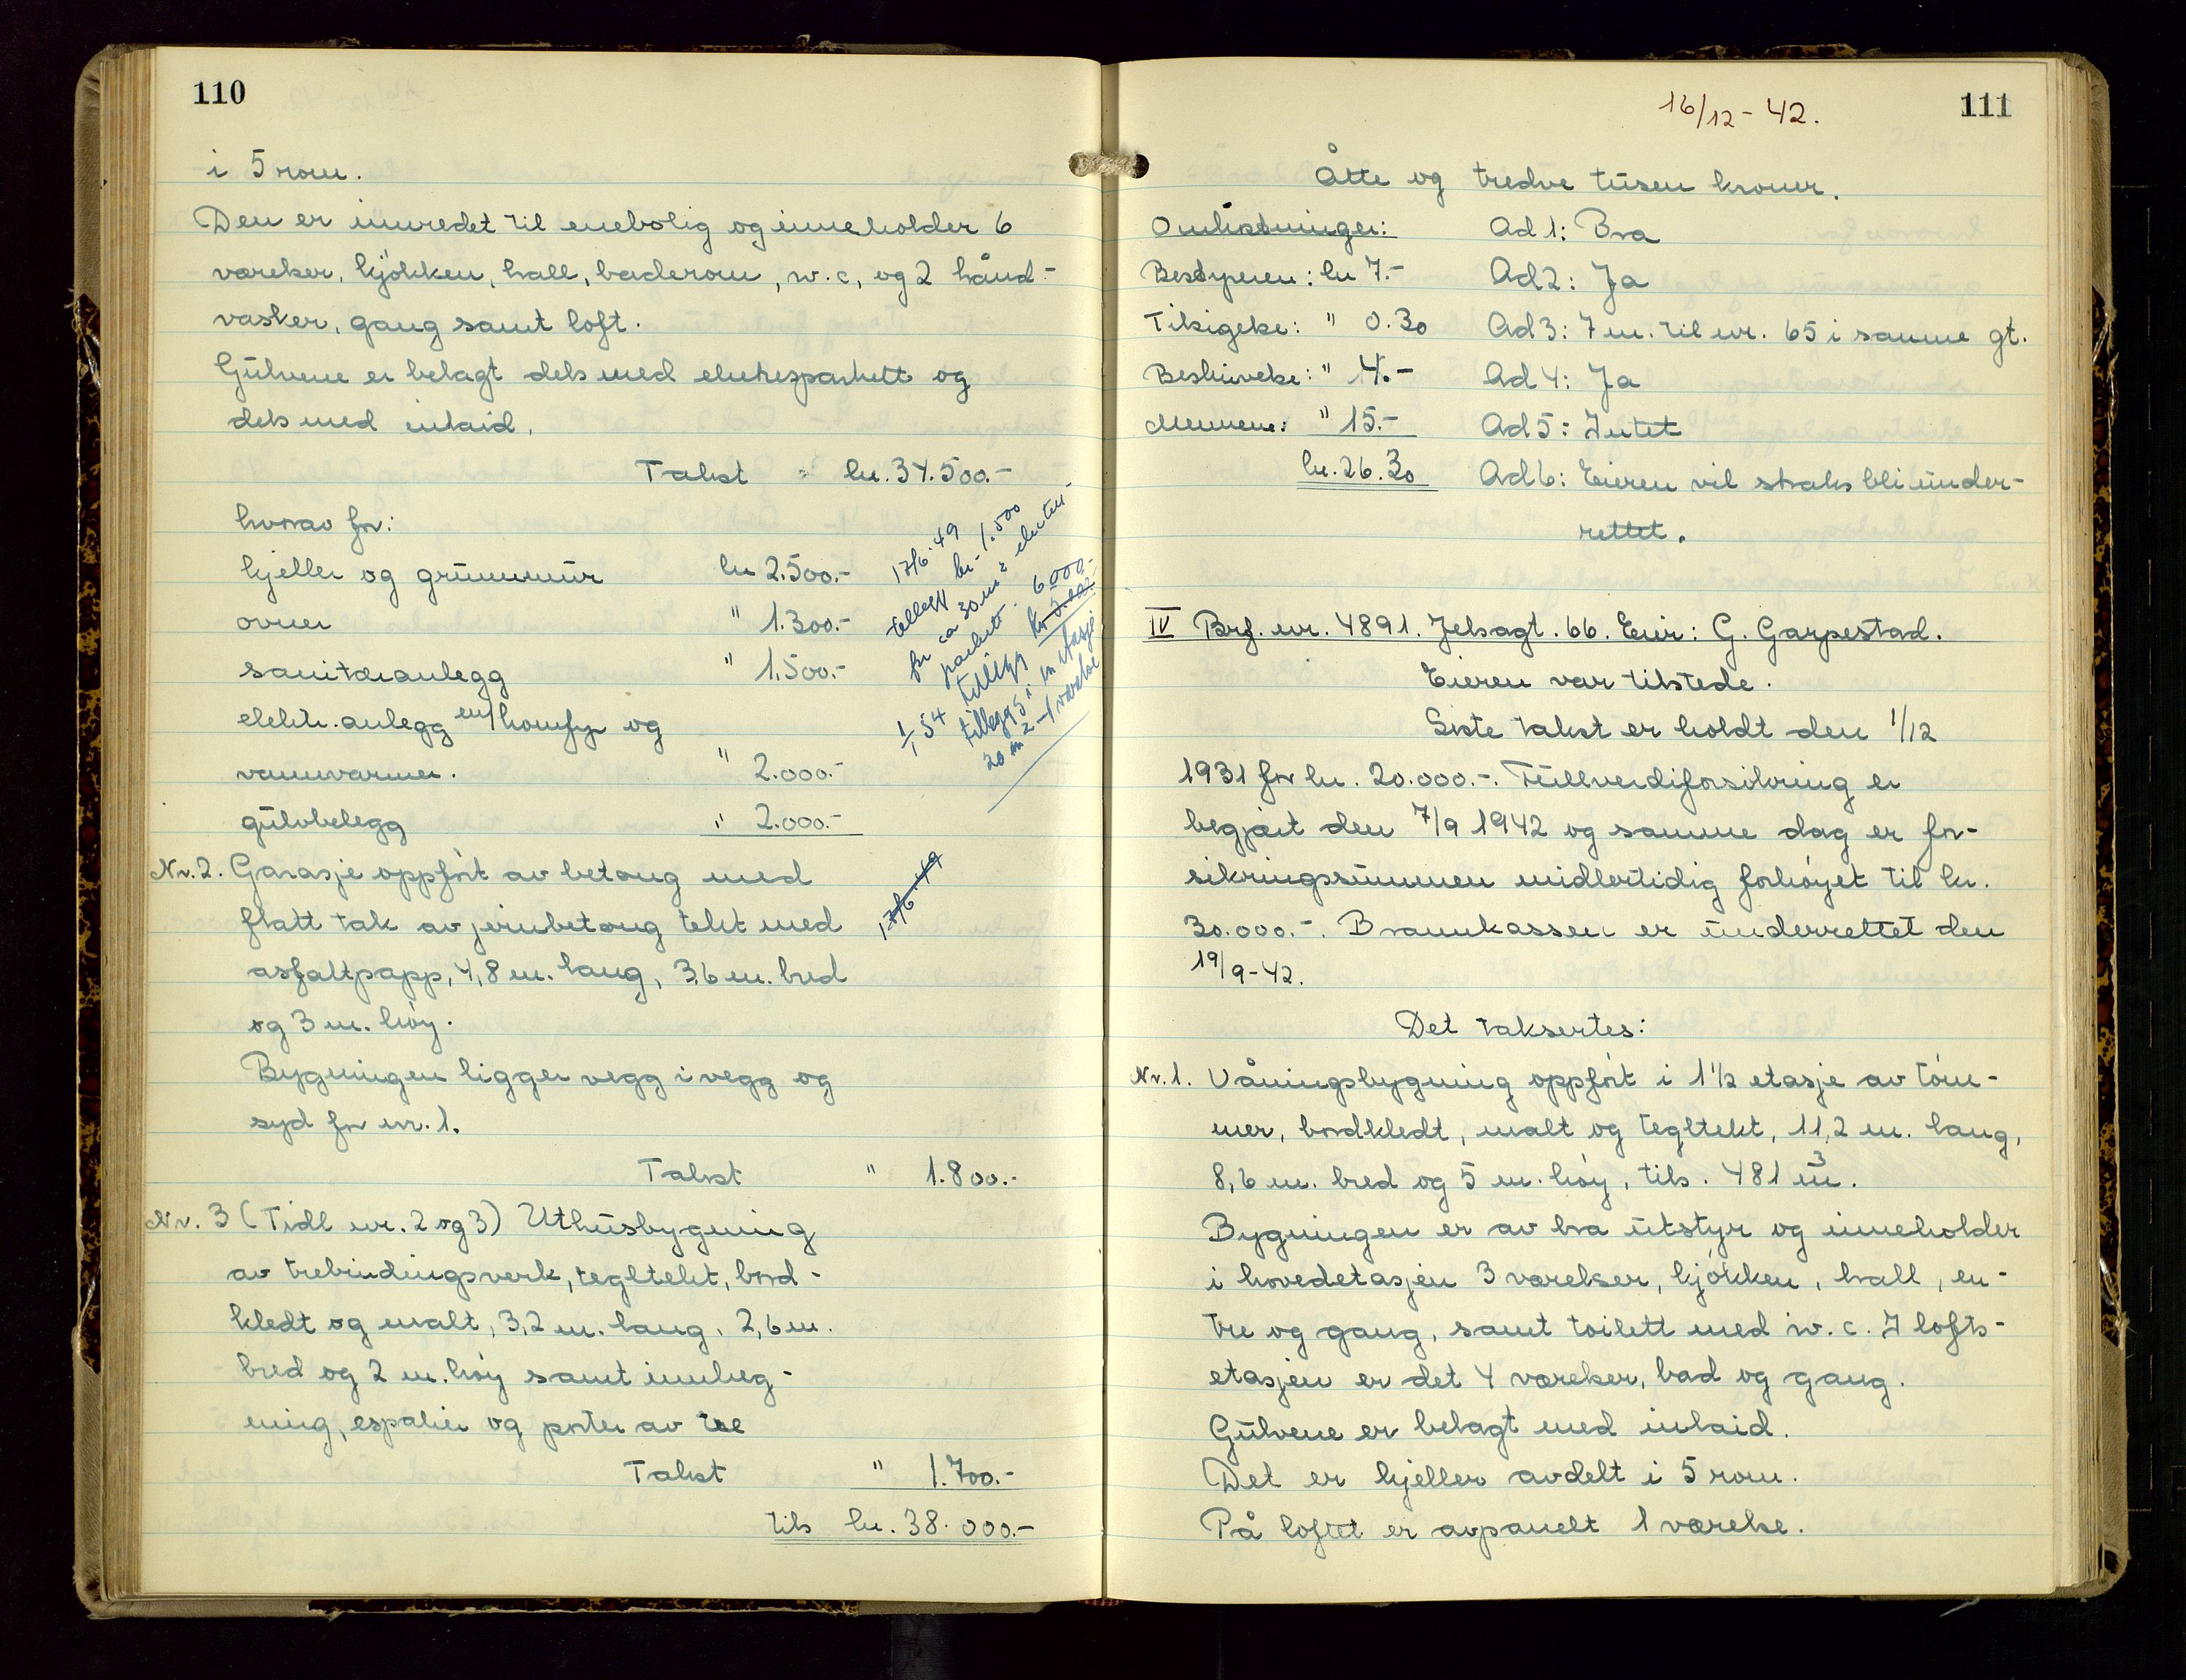 110
i 5 rom.
Den er innredet til enebolig og inneholder 6
værelser, kjøkken, hall, baderom, w.c, og 2 hånd-
vasker, gang samt loft.
Gulvene er belagt dels med ekehesparkett og
dels med inlaid.
Takst kr. 34.500.-
hvorav for:
kjeller og grunnmur kr 2.500.-
ovner " 1.300.-
sanitæranlegg " 1.500.-
elektr. anlegg en/ komfyr og
vannvarmer. " 2.000.-
gulvbelegg " 2.000.-
17/6.49
tillegg kr 1.500
for ca 30 m²
parkett. 6000.-
1/1 54 tillegg kr
tillegg 5" in etasje
20 m2 - 1 værelse
Nr. 2. Garasje oppført av betong med
flatt tak av jernbetong tekt med
17/6.49
asfaltpapp, 4,8 m. lang, 3,6 m. bred
og 3 m. høy.
Bygningen ligger vegg i vegg og
syd for nr. 1.
Takst " 1.800.-
Nr. 3 (Tidl nr. 2 og 3) Uthusbygning
av trebindingsverk, tegltekt, bord-
kledt og malt, 3,2 m. lang, 2,6 m.
bred og 2 m. høy samt innheg-
ning, espalier og porter av tre
Takst " 1.700.-
tils kr. 38.000.-
16/12 - 42. 111
Åtte og tredve tusen kroner.
Omkostninger: Ad 1: Bra
Bestyreren: kr 7.- Ad 2: Ja
Tilsigelse: " 0.30 Ad 3: 7 m. til nr. 65 i samme gt.
Beskrivelse: " 4.- Ad 4: Ja
Mennene: " 15.- Ad 5: Intet
kr. 26.30 Ad 6: Eieren vil straks bli under-
rettet.
IV Brf. nr. 4891. Jelsagt. 66. Eier: G. Garpestad.
Eieren var tilstede.
Siste takst er holdt den 1/12
1931 for kr. 20.000.-. Fullverdiforsikring er
begjært den 7/9 1942 og samme dag er for-
sikringssummen midlertidig forhøyet til kr.
30.000.-. Brannkassen er underrettet den
19/9-42.
Det taksertes:
Nr. 1. Våningsbygning oppført i 1 1/2 etasje av tøm-
mer, bordkledt, malt og tegltekt, 11,2 m. lang,
8,6 m. bred og 5 m. høy, tils. 481 m³.
Bygningen er av bra utstyr og inneholder
i hovedetasjen 3 værelser, kjøkken, hall, en-
tre og gang, samt toilett med w.c. I lofts-
etasjen er det 4 værelser, bad og gang.
Gulvene er belagt med inlaid.
Det er kjeller avdelt i 5 rom.
På loftet er avpanelt 1 værelse.